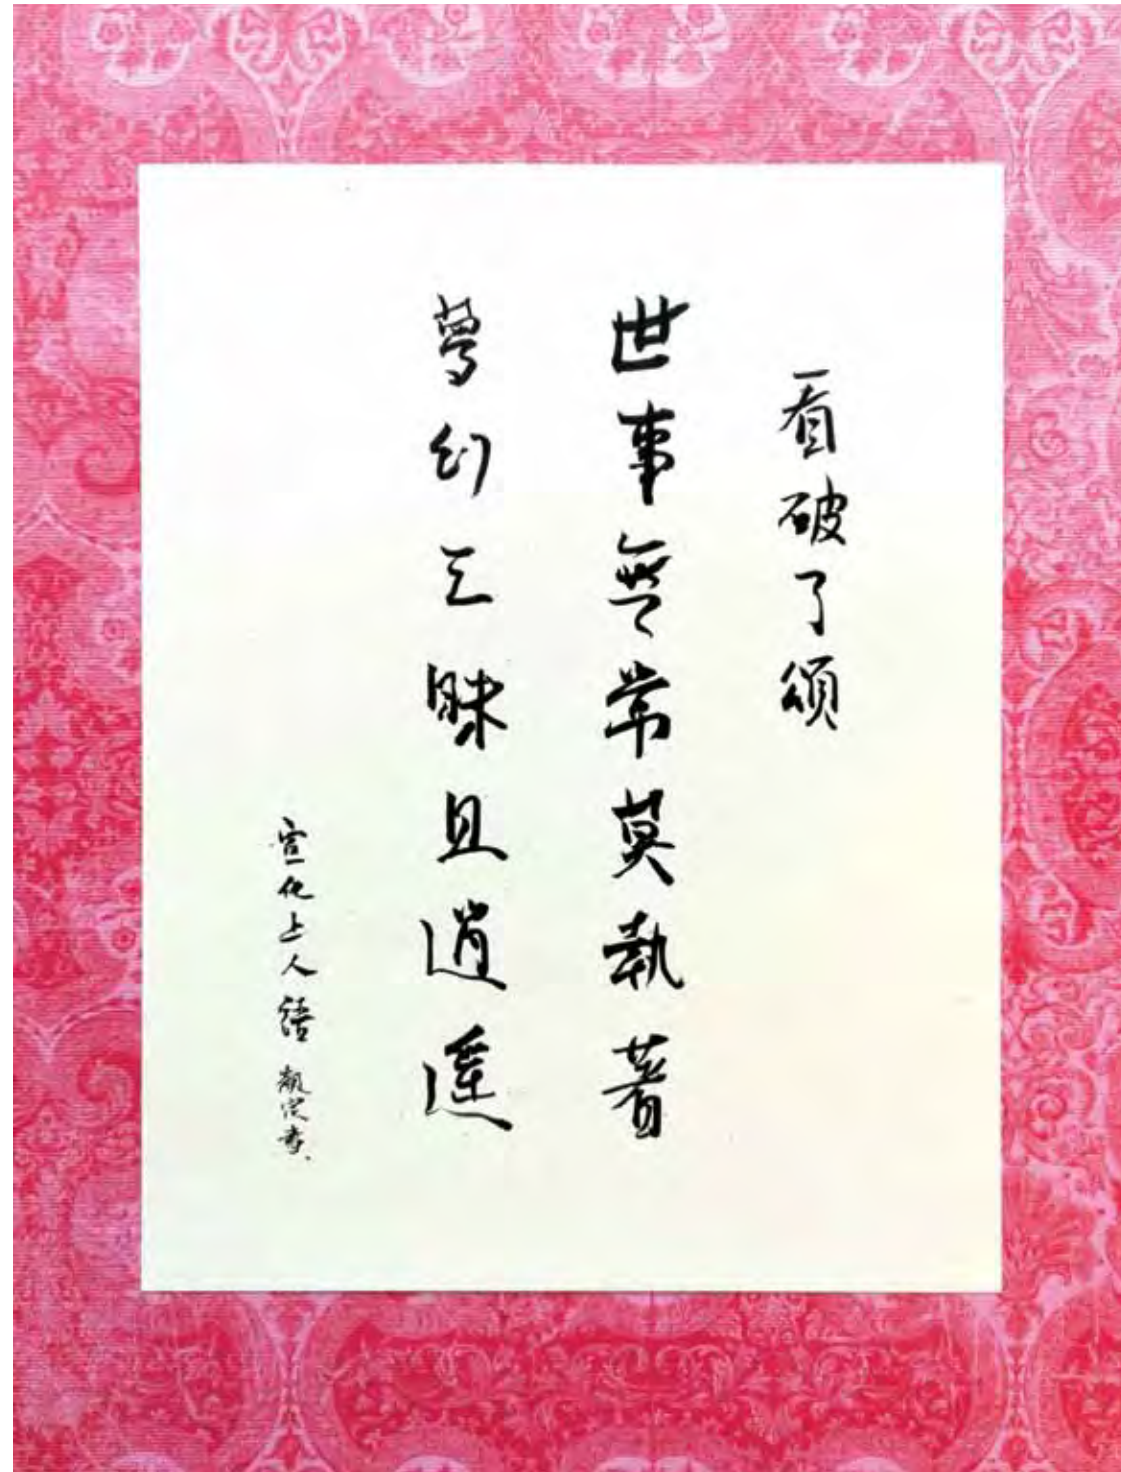 看破了頌
世事無常莫執著
夢幻三昧且逍遥
宣化上人語 書